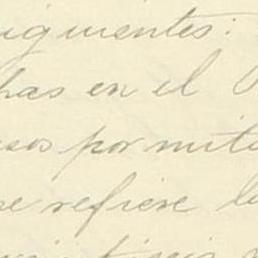 iguientes:
pas en el
sos por mita
se refiere l